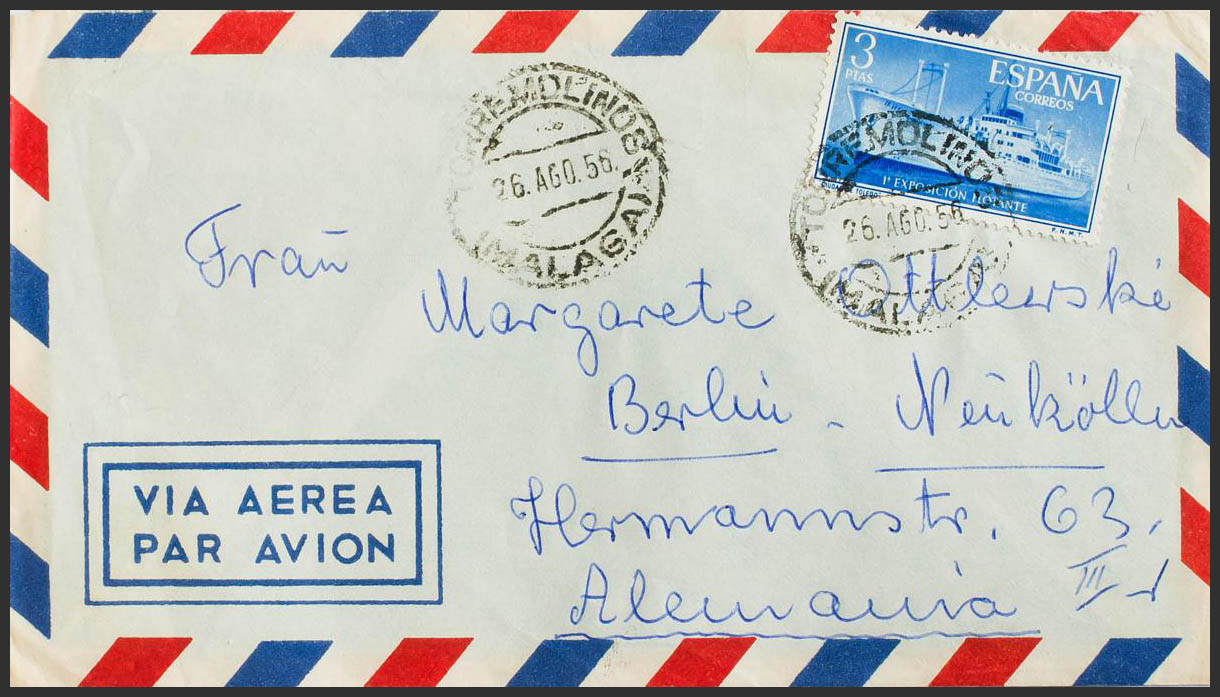 3
PTAS
ESPAÑA
CORREOS
1ª EXPOSICIÓN FLOTANTE
CIUDAD TOLEDO
F.N.M.T.
TORREMOLINOS
26.AGO.56.
MALAGA
TORREMOLINOS
26.AGO.56
MALAGA
Frau
Margarete Ottlewski
Berlin - Neukölln
Hermannstr. 63.
III
Alemania
VIA AEREA
PAR AVION